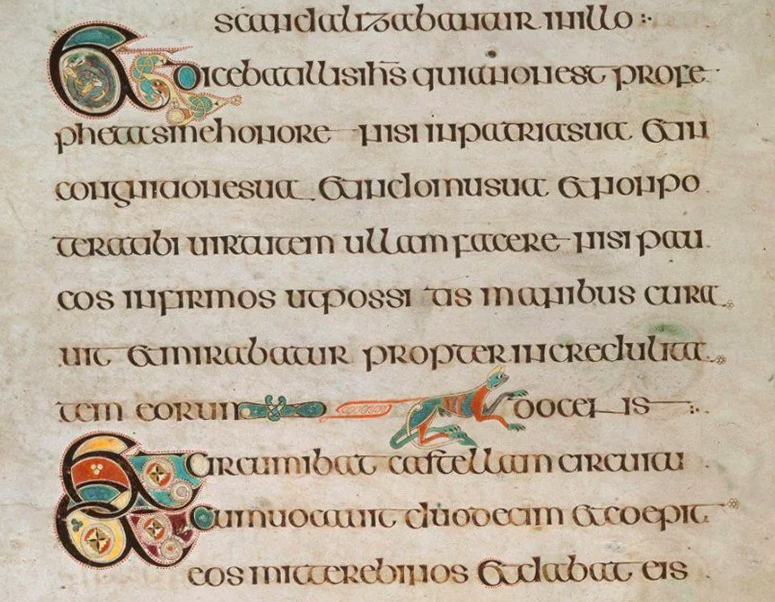 scandalizabantur in illo :·
Et dicebat illis ihs quia non est profe
pheta sine honore nisi in patria sua et in
congnatione sua et in domu sua et non po
terat ibi uirtutem ullam facere nisi pau
cos infirmos utpossi tis manibus cura
uit et mirabatur propter incredulitat
tem eorum docens
Et circumibat castellam circuitu
Et cum uocauit duodecim et coepit
eos mittere binos et dabat eis